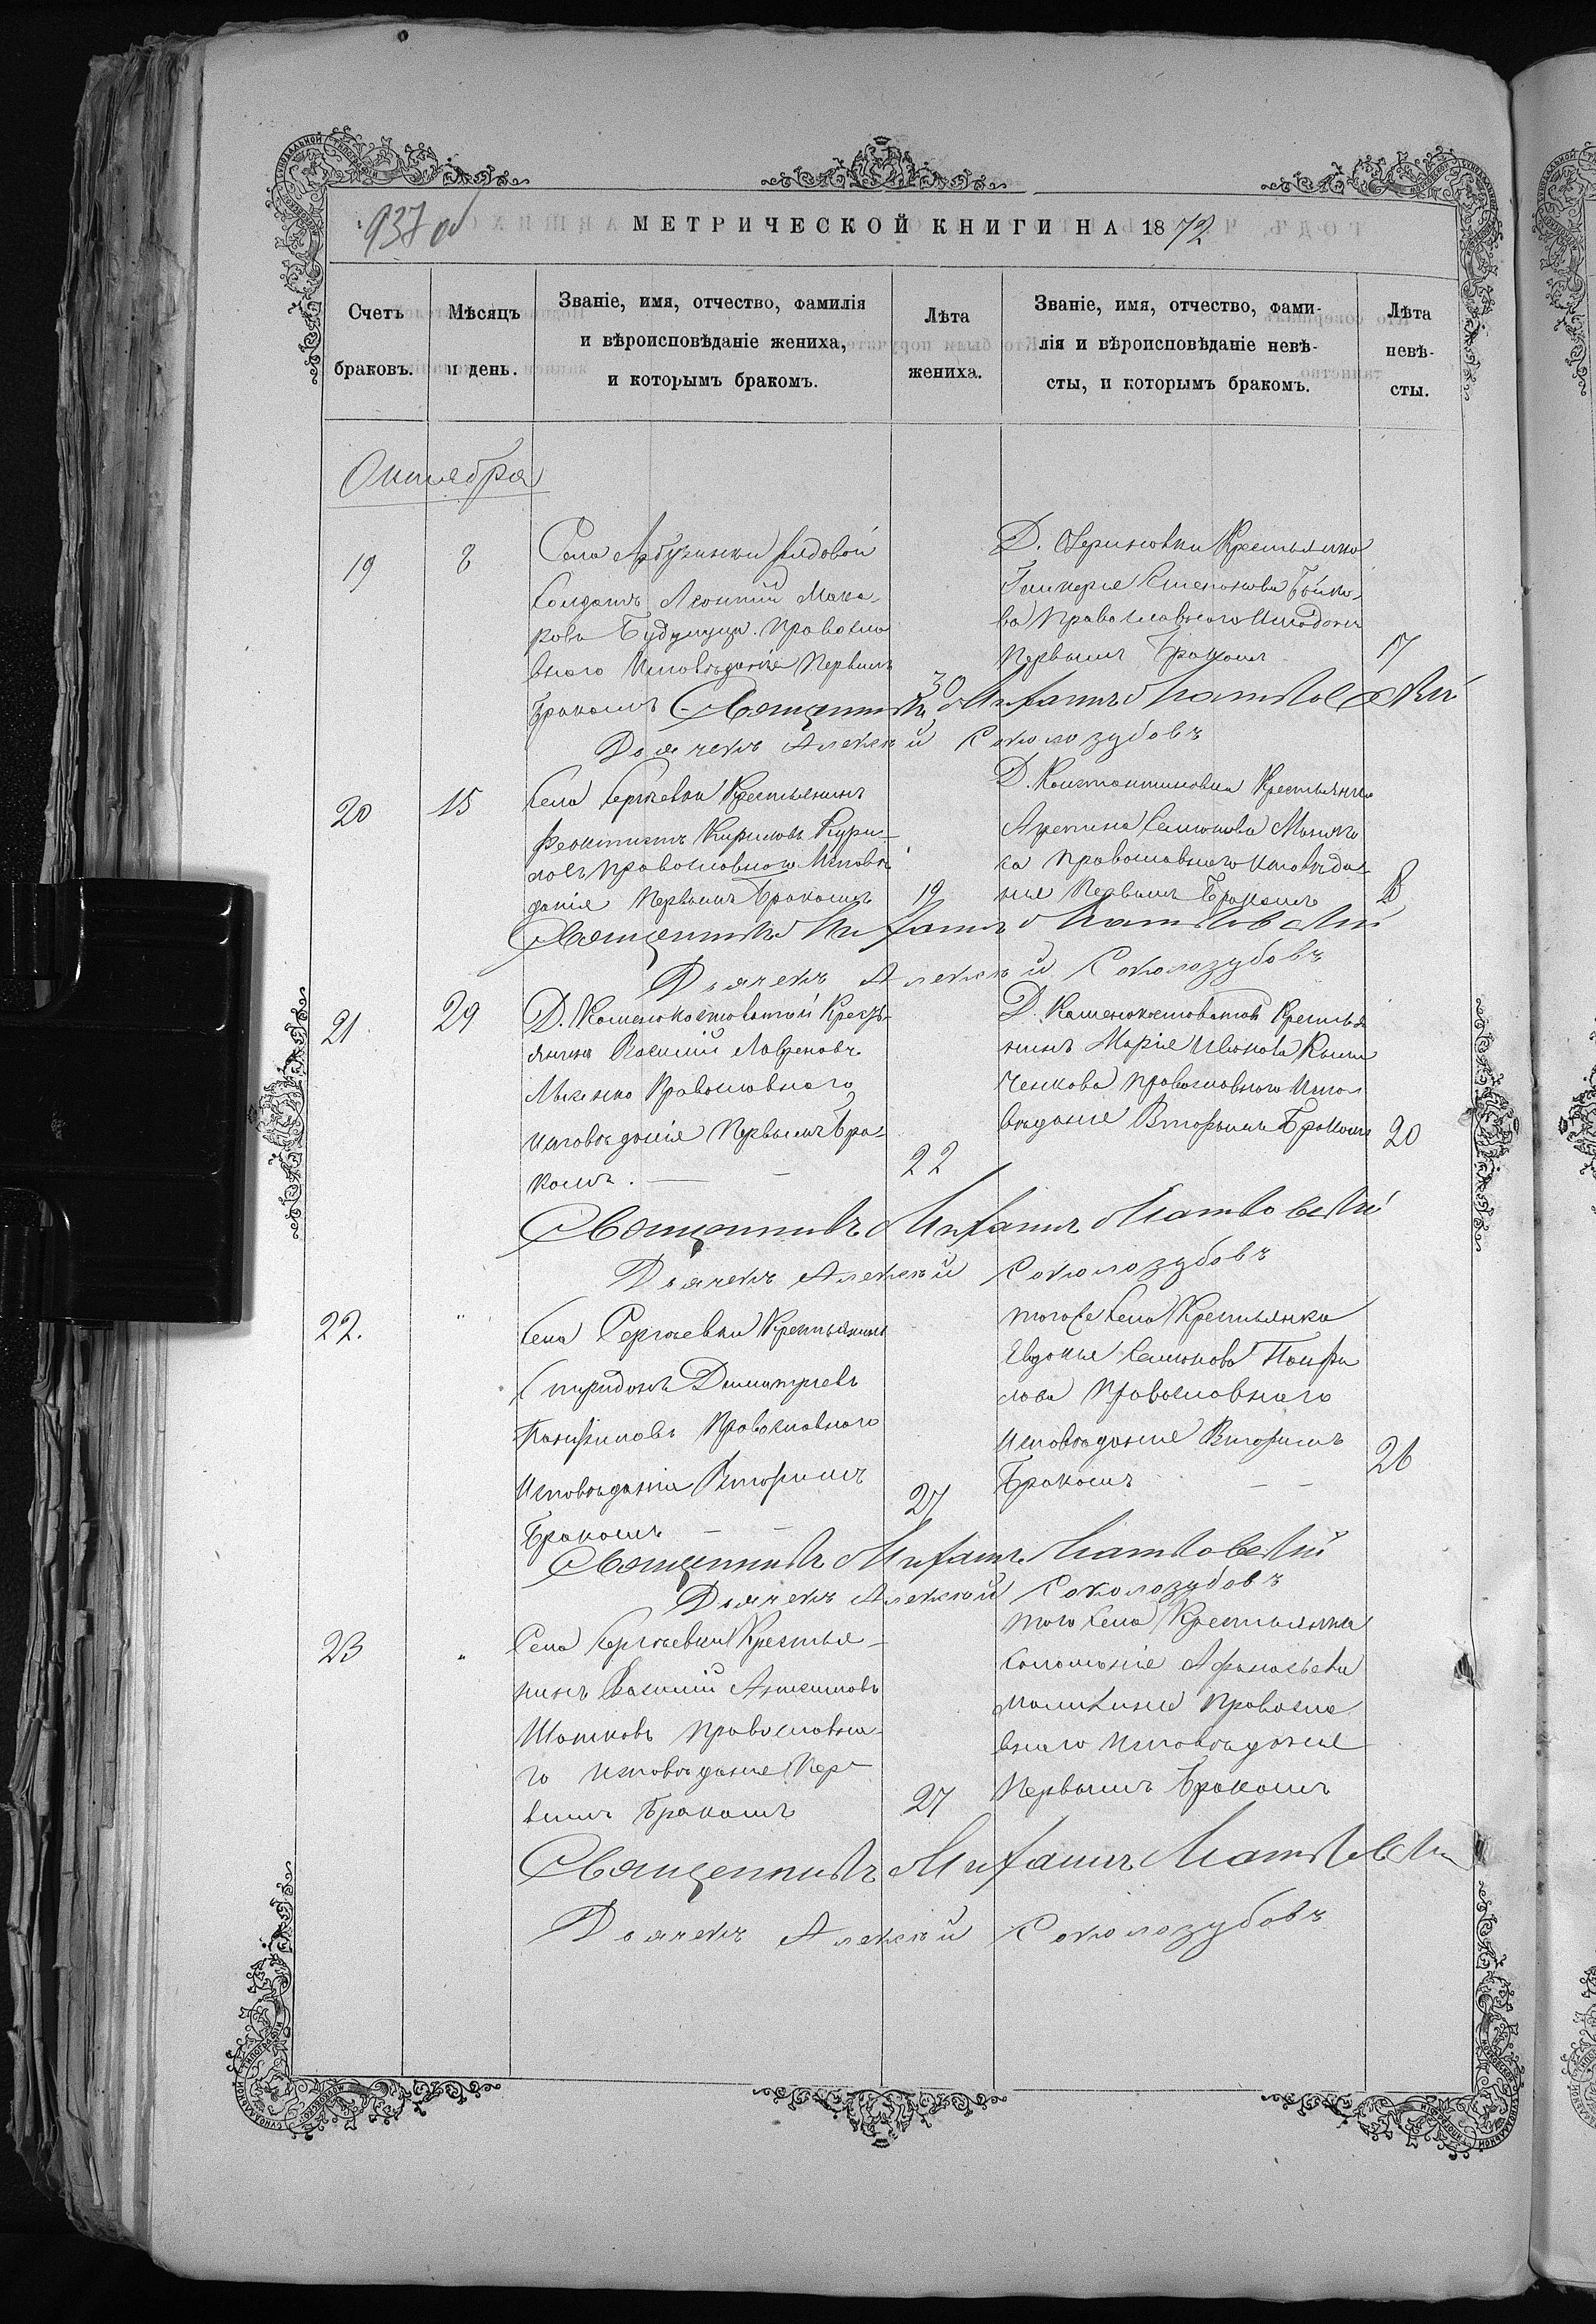 937 об
МЕТРИЧЕСКОЙ КНИГИ НА 1872
Счетъ браковъ.
Мѣсяцъ и день.
Званіе, имя, отчество, фамилія
и вѣроисповѣданіе жениха,
и которымъ бракомъ.
Лѣта жениха.
Званіе, имя, отчество, фами-
лія и вѣроисповѣданіе невѣ-
сты, и которымъ бракомъ.
Лѣта невѣ-
сты.
Октября
19
8
Села Арбузинки рядовой
Солдатъ Леонтій Мака-
ровъ православ
внаго Исповѣданія Первымъ
Бракомъ
30
Д. Крестьянка
Гликерія Степанова Бойко-
ва Православнаго
Первымъ Бракомъ
17
Священникъ
Дьячекъ Алексѣй Соколозубовъ
20
15
Села Сергѣевки Крестьянинъ
Феоктистъ Кириловъ Кури-
ловъ православнаго Исповѣ
данія Первымъ Бракомъ
19
Д. Константиновки Крестьянка
Семіонова
православнаго исповѣда-
нія Первымъ Бракомъ
Священникъ
Дьячекъ Алексѣй Соколозубовъ
21
29
Д. Каменокостоватой Кресть-
янинъ Василій Лавреновъ
Православнаго
исповѣданія Первымъ Бра-
комъ. —
22
Д. Каменокостоватой Крестья
нинъ Марія Иванова
ченкова православнаго Испо
вѣданіе Вторымъ Бракомъ
20
Священникъ
Дьячекъ Алексѣй Соколозубовъ
22.
"
Села Сергѣевки Крестьянинъ
Спиридонъ Димитріевъ
Панфиловъ Православнаго
Исповѣданія Вторымъ
Бракомъ — —
27
того Села Крестьянка
Евдокія Семіонова Панфи
лова Православнаго
Исповѣданіе Вторымъ
Бракомъ — —
26
Священникъ
Дьячекъ Алексѣй Соколозубовъ
23
"
Села Сергѣевки Крестья-
нинъ Василій
православна-
го исповѣданіе Пер-
вымъ Бракомъ
27
того Села Крестьянка
Соломонія Афанасьева
Маликина Правосла
внаго исповѣданіе
Первымъ Бракомъ
Священникъ
Дьячекъ Алексѣй Соколозубовъ